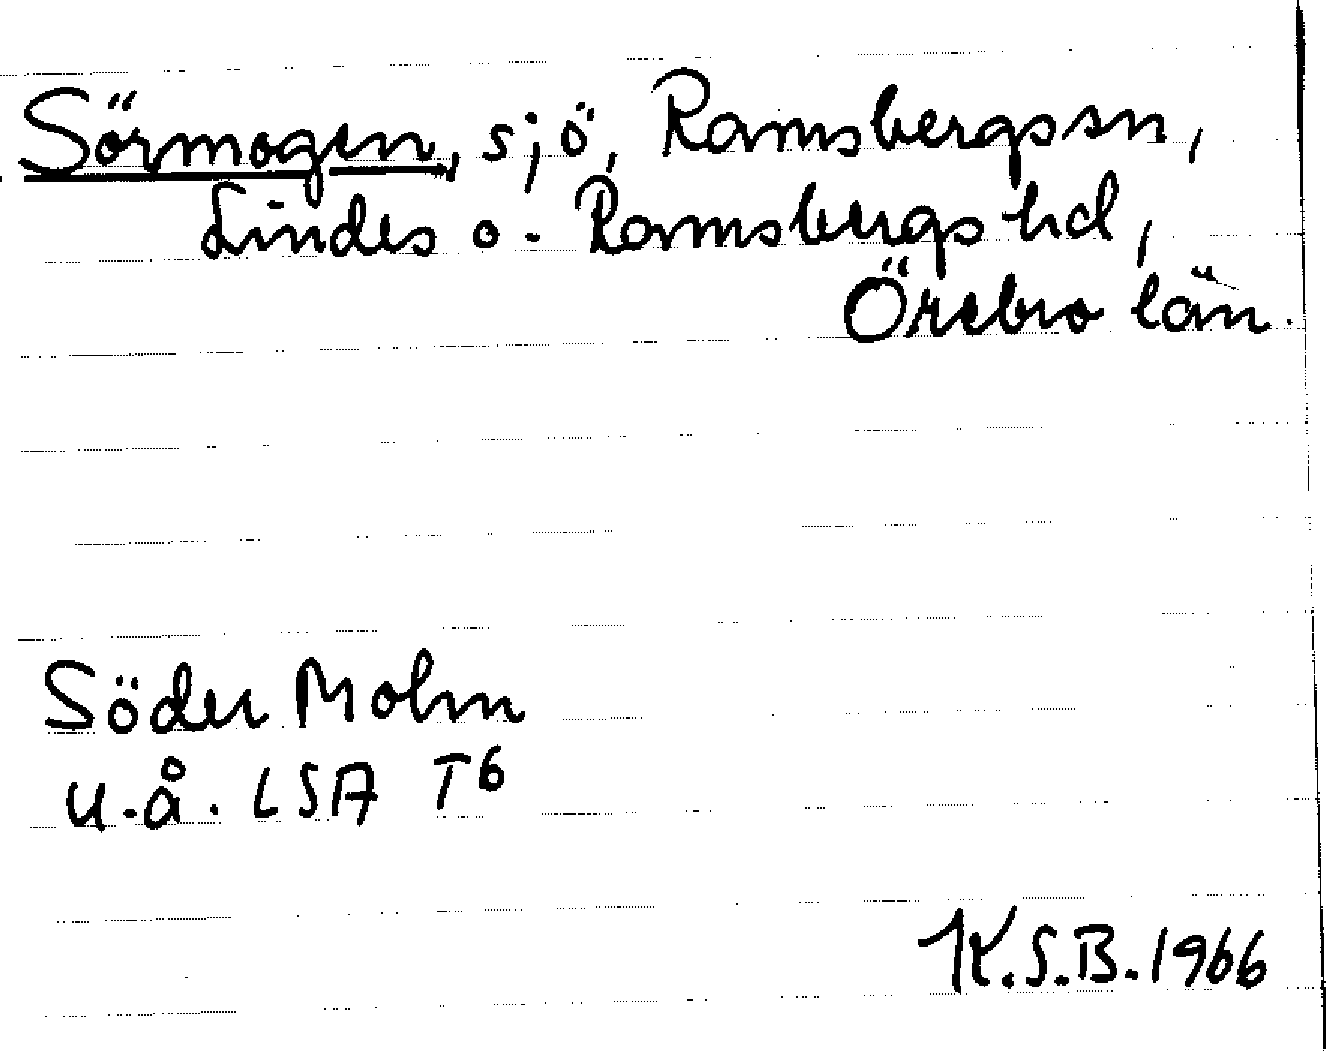 Sörmogen, sjö, Ramsbergs sn,
Lindes o. Ramsbergs hd,
Örebro län.
Söder Mohn
u.å. LSA T6
K.S.B. 1966